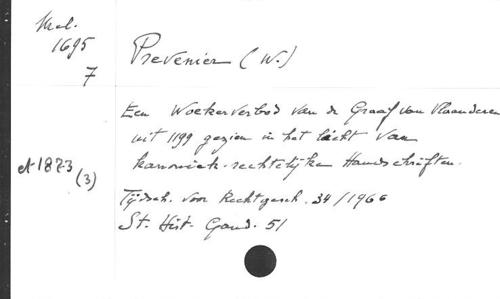 Mel.
1695
7
Prevenier (W.)
Een Woekerverbod van de Graaf van Vlaanderen
uit 1199 gezien in het licht van
kanoniek-rechtelijke Handschriften.
A 1873
(3)
Tijdsch. voor Rechtgesch. 34/1966
St. Hist. Gand. 51